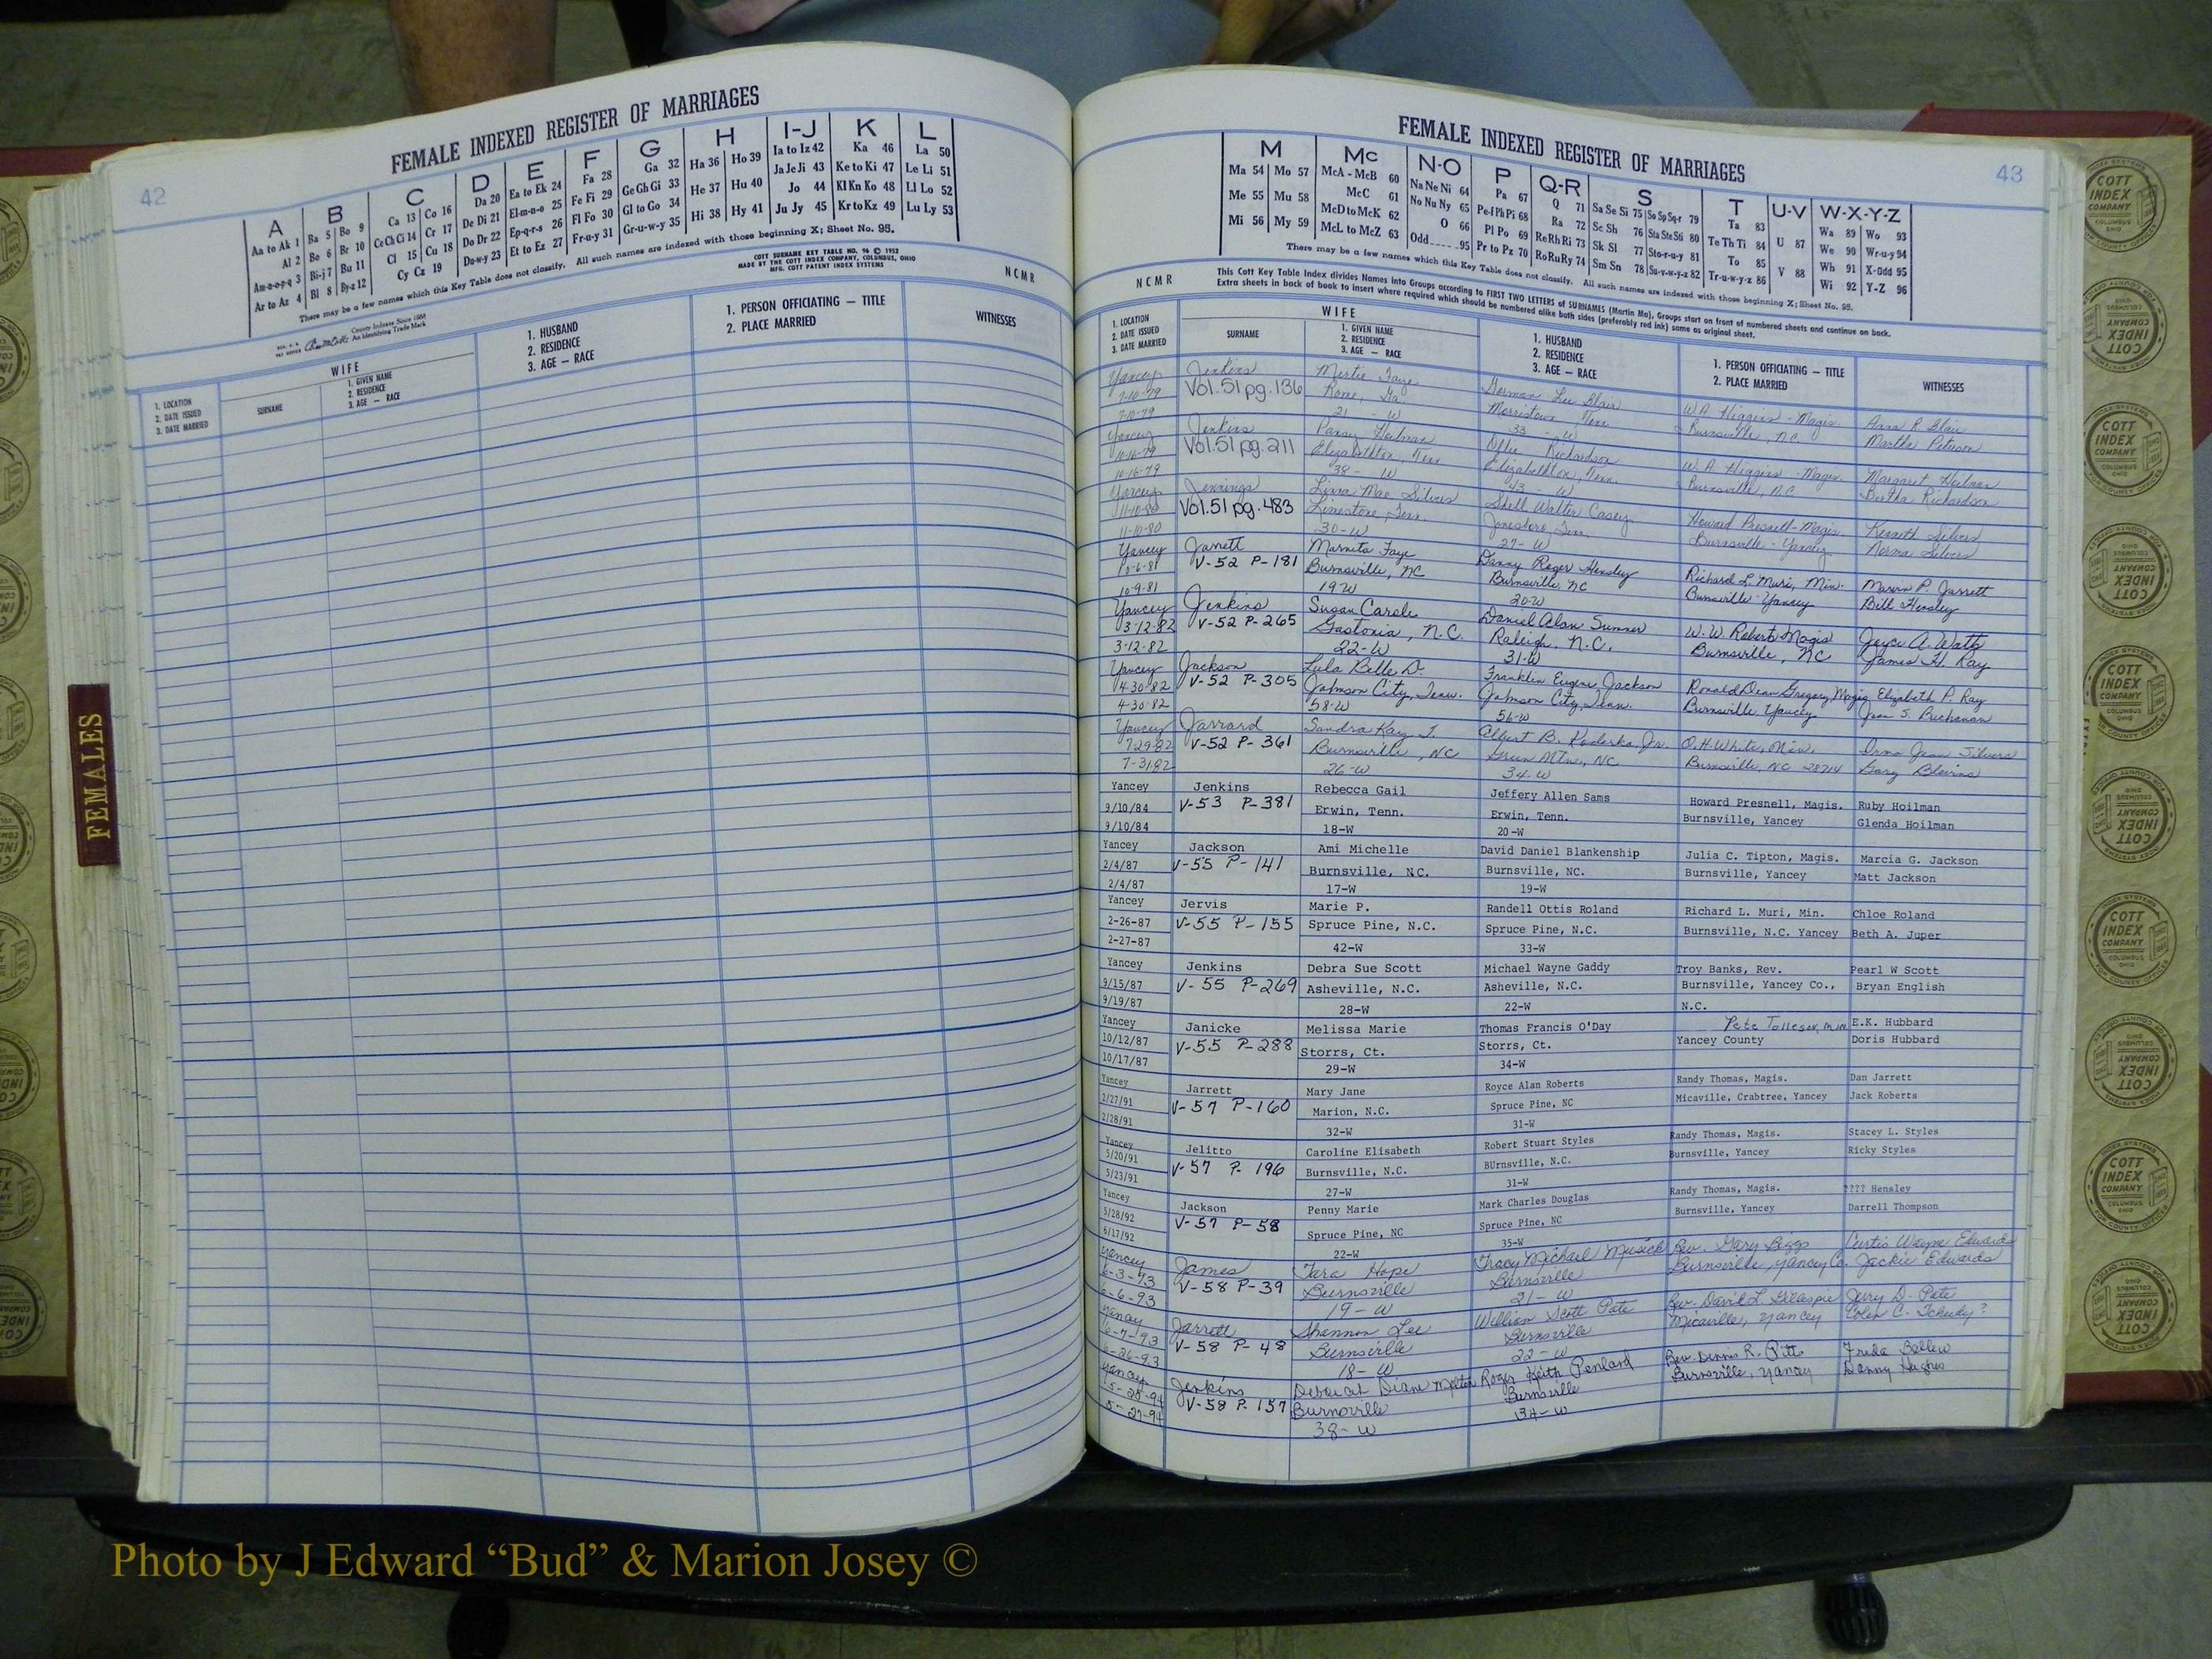 42
FEMALE INDEXED REGISTER OF MARRIAGES
A
Aa to Ak 1
Al 2
Am-n-o-p-q 3
Ar to Az 4
B
Ba 5 Bo 9
Be 6 Br 10
Bi-j 7 Bu 11
Bl 8 By-z 12
C
Ca 13 Co 16
Ce Ch Ci 14 Cr 17
Cl 15 Cu 18
Cy Cz 19
D
Da 20
De Di 21
Do Dr 22
Du-w-y 23
E
Ea to Ek 24
El-m-n-o 25
Ep-q-r-s 26
Et to Ez 27
F
Fa 28
Fe Fi 29
Fl Fo 30
Fr-u-y 31
G
Ga 32
Ge Gh Gi 33
Gl to Go 34
Gr-u-w-y 35
H
Ha 36 Ho 39
He 37 Hu 40
Hi 38 Hy 41
I-J
Ia to Iz 42
Ja Je Ji 43
Jo 44
Ju Jy 45
K
Ka 46
Ke to Ki 47
Kl Kn Ko 48
Kr to Kz 49
L
La 50
Le Li 51
Ll Lo 52
Lu Ly 53
There may be a few names which this Key Table does not classify. All such names are indexed with those beginning X; Sheet No. 95.
COTT SURNAME KEY TABLE NO. 96 © 1952
MADE BY THE COTT INDEX COMPANY, COLUMBUS, OHIO
MFG. COTT PATENT INDEX SYSTEMS
County Indexes Since 1888
An Identifying Trade Mark
N C M R
1. LOCATION
2. DATE ISSUED
3. DATE MARRIED
WIFE
SURNAME
1. GIVEN NAME
2. RESIDENCE
3. AGE — RACE
1. HUSBAND
2. RESIDENCE
3. AGE — RACE
1. PERSON OFFICIATING — TITLE
2. PLACE MARRIED
WITNESSES
FEMALES
43
FEMALE INDEXED REGISTER OF MARRIAGES
M
Ma 54 Mo 57
Me 55 Mu 58
Mi 56 My 59
Mc
McA - McB 60
McC 61
McD to McK 62
McL to McZ 63
N-O
Na Ne Ni 64
No Nu Ny 65
O 66
Odd 95
P
Pa 67
Pe-f Ph Pi 68
Pl Po 69
Pr to Pz 70
Q-R
Q 71
Ra 72
Re Rh Ri 73
Ro Ru Ry 74
S
Sa Se Si 75 So Sp Sq-r 79
Sc Sh 76 Sta Ste Sti 80
Sk Sl 77 Sto-r-u-y 81
Sm Sn 78 Su-v-w-y-z 82
T
Ta 83
Te Th Ti 84
To 85
Tr-u-w-y-z 86
U-V
U 87
V 88
W-X-Y-Z
Wa 89 Wo 93
We 90 Wr-u-y 94
Wh 91 X-Odd 95
Wi 92 Y-Z 96
There may be a few names which this Key Table does not classify. All such names are indexed with those beginning X; Sheet No. 95.
N C M R
This Cott Key Table Index divides Names into Groups according to FIRST TWO LETTERS of SURNAMES (Martin Ma), Groups start on front of numbered sheets and continue on back.
Extra sheets in back of book to insert where required which should be numbered alike both sides (preferably red ink) same as original sheet.
1. LOCATION
2. DATE ISSUED
3. DATE MARRIED
WIFE
SURNAME
1. GIVEN NAME
2. RESIDENCE
3. AGE — RACE
1. HUSBAND
2. RESIDENCE
3. AGE — RACE
1. PERSON OFFICIATING — TITLE
2. PLACE MARRIED
WITNESSES
Yancey Jenkins Mertie Faye Herman Lee Blair W.A. Higgins - Magis. Anna R. Blair
7-10-79 Vol. 51 pg. 136 Rome, Ga. Morristown Tenn Burnsville, N.C. Martha Peterson
7-10-79 21 - W 33 - W
Yancey Jenkins Pansy Hoilman Ollie Richardson W.A. Higgins - Magis. Margaret Hoilman
10-16-79 Vol. 51 pg. 211 Elizabethton, Tenn Elizabethton, Tenn. Burnsville, N.C. Bertha Richardson
10-16-79 38 - W 43 - W
Yancey Jennings Linna Mae Silvers Shell Walter Casey Howard Presnell - Magis. Kenneth Silvers
11-10-80 Vol. 51 pg. 483 Limestone, Tenn. Jonesboro, Tenn Burnsville - Yancey Norma Silvers
11-10-80 30-W 27-W
Yancey Jarrett Marnita Faye Danny Roger Hensley Richard L. Muri, Min. Marvin P. Jarrett
10-6-81 V-52 P-181 Burnsville, NC Burnsville, NC Burnsville-Yancey Bill Hensley
10-9-81 19 W 20-W
Yancey Jenkins Susan Carole Daniel Alan Sumner W.W. Robert Magis Joyce A. Watts
3-12-82 V-52 P-265 Gastonia, N.C. Raleigh, N.C. Burnsville, NC James H. Ray
3-12-82 22-W 31-W
Yancey Jackson Lula Belle D. Franklin Eugene Jackson Ronald Dean Gregory, Magis Elizabeth P. Ray
4-30-82 V-52 P-305 Johnson City, Tenn. Johnson City, Tenn. Burnsville, Yancey Jean S. Buchanan
4-30-82 58-W 56-W
Yancey Jarrard Sandra Kay T. Albert B. Koderka, Jr. O.H. White, Min. Irma Jean Silvers
7-29-82 V-52 P-361 Burnsville, NC Green Mtn., NC Burnsville, NC 28714 Gary Blevins
7-31-82 26-W 34-W
Yancey Jenkins Rebecca Gail Jeffery Allen Sams Howard Presnell, Magis. Ruby Hoilman
9/10/84 V-53 P-381 Erwin, Tenn. Erwin, Tenn. Burnsville, Yancey Glenda Hoilman
9/10/84 18-W 20-W
Yancey Jackson Ami Michelle David Daniel Blankenship Julia C. Tipton, Magis. Marcia G. Jackson
2/4/87 V-55 P-141 Burnsville, NC. Burnsville, NC. Burnsville, Yancey Matt Jackson
2/4/87 17-W 19-W
Yancey Jervis Marie P. Randell Ottis Roland Richard L. Muri, Min. Chloe Roland
2-26-87 V-55 P-155 Spruce Pine, N.C. Spruce Pine, N.C. Burnsville, N.C. Yancey Beth A. Juper
2-27-87 42-W 33-W
Yancey Jenkins Debra Sue Scott Michael Wayne Gaddy Troy Banks, Rev. Pearl W Scott
9/15/87 V-55 P-269 Asheville, N.C. Asheville, N.C. Burnsville, Yancey Co., Bryan English
9/19/87 28-W 22-W N.C.
Yancey Janicke Melissa Marie Thomas Francis O'Day Pete Tolleson, Min E.K. Hubbard
10/12/87 V-55 P-288 Storrs, Ct. Storrs, Ct. Yancey County Doris Hubbard
10/17/87 29-W 34-W
Yancey Jarrett Mary Jane Royce Alan Roberts Randy Thomas, Magis. Dan Jarrett
2/27/91 V-57 P-160 Marion, N.C. Spruce Pine, NC Micaville, Crabtree, Yancey Jack Roberts
2/28/91 32-W 31-W
Yancey Jelitto Caroline Elisabeth Robert Stuart Styles Randy Thomas, Magis. Stacey L. Styles
5/20/91 V-57 P. 196 Burnsville, N.C. BUrnsville, N.C. Burnsville, Yancey Ricky Styles
5/23/91 27-W 31-W
Yancey Jackson Penny Marie Mark Charles Douglas Randy Thomas, Magis. ???? Hensley
5/28/92 V-57 P-58 Spruce Pine, NC Spruce Pine, NC Burnsville, Yancey Darrell Thompson
6/17/92 22-W 35-W
Yancey James Tara Hope Tracy Michael Musick Rev. Gary Biggs Curtis Wayne Edwards
6-3-93 V-58 P-39 Burnsville Burnsville Burnsville, Yancey Co. Jackie Edwards
6-6-93 19-W 21-W
Yancey Jarrett Shannon Lee William Scott Pate Rev. David L. Gillespie Jerry D. Pate
6-7-93 V-58 P-48 Burnsville Burnsville Micaville, Yancey
6-26-93 18-W 22-W
Yancey Jenkins Deborah Diane Melton Roger Keith Penland Rev. Dennis R. Pitts Freda Ballew
5-25-94 V-58 P. 157 Burnsville Burnsville Burnsville, Yancey Danny Hughes
5-27-94 38-W 34-W
Photo by J Edward “Bud” & Marion Josey ©